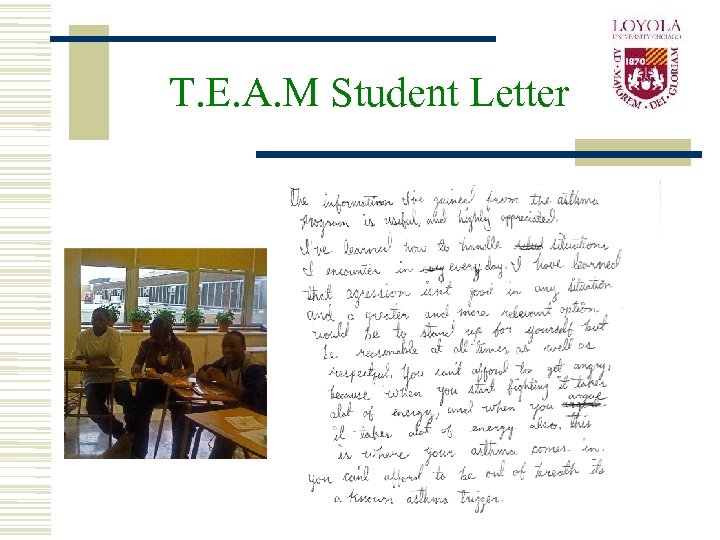 LOYOLA
UNIVERSITY CHICAGO
AD MAJOREM DEI GLORIAM
1870
T. E. A. M Student Letter
The information I've gained from the asthma
program is useful, and highly appreciated.
I've learned how to handle situations
I encounter in everyday. I have learned
that agression isnt good in any situation
and a greater and more relevant option
would be to stand up for yourself but
be reasonable at all times as well as
respectful. You can't afford to get angry,
because when you start fighting it takes
alot of energy, and when you argue
it takes alot of energy also. this
is where your asthma comes in.
you can't afford to be out of breath its
a known asthma trigger.